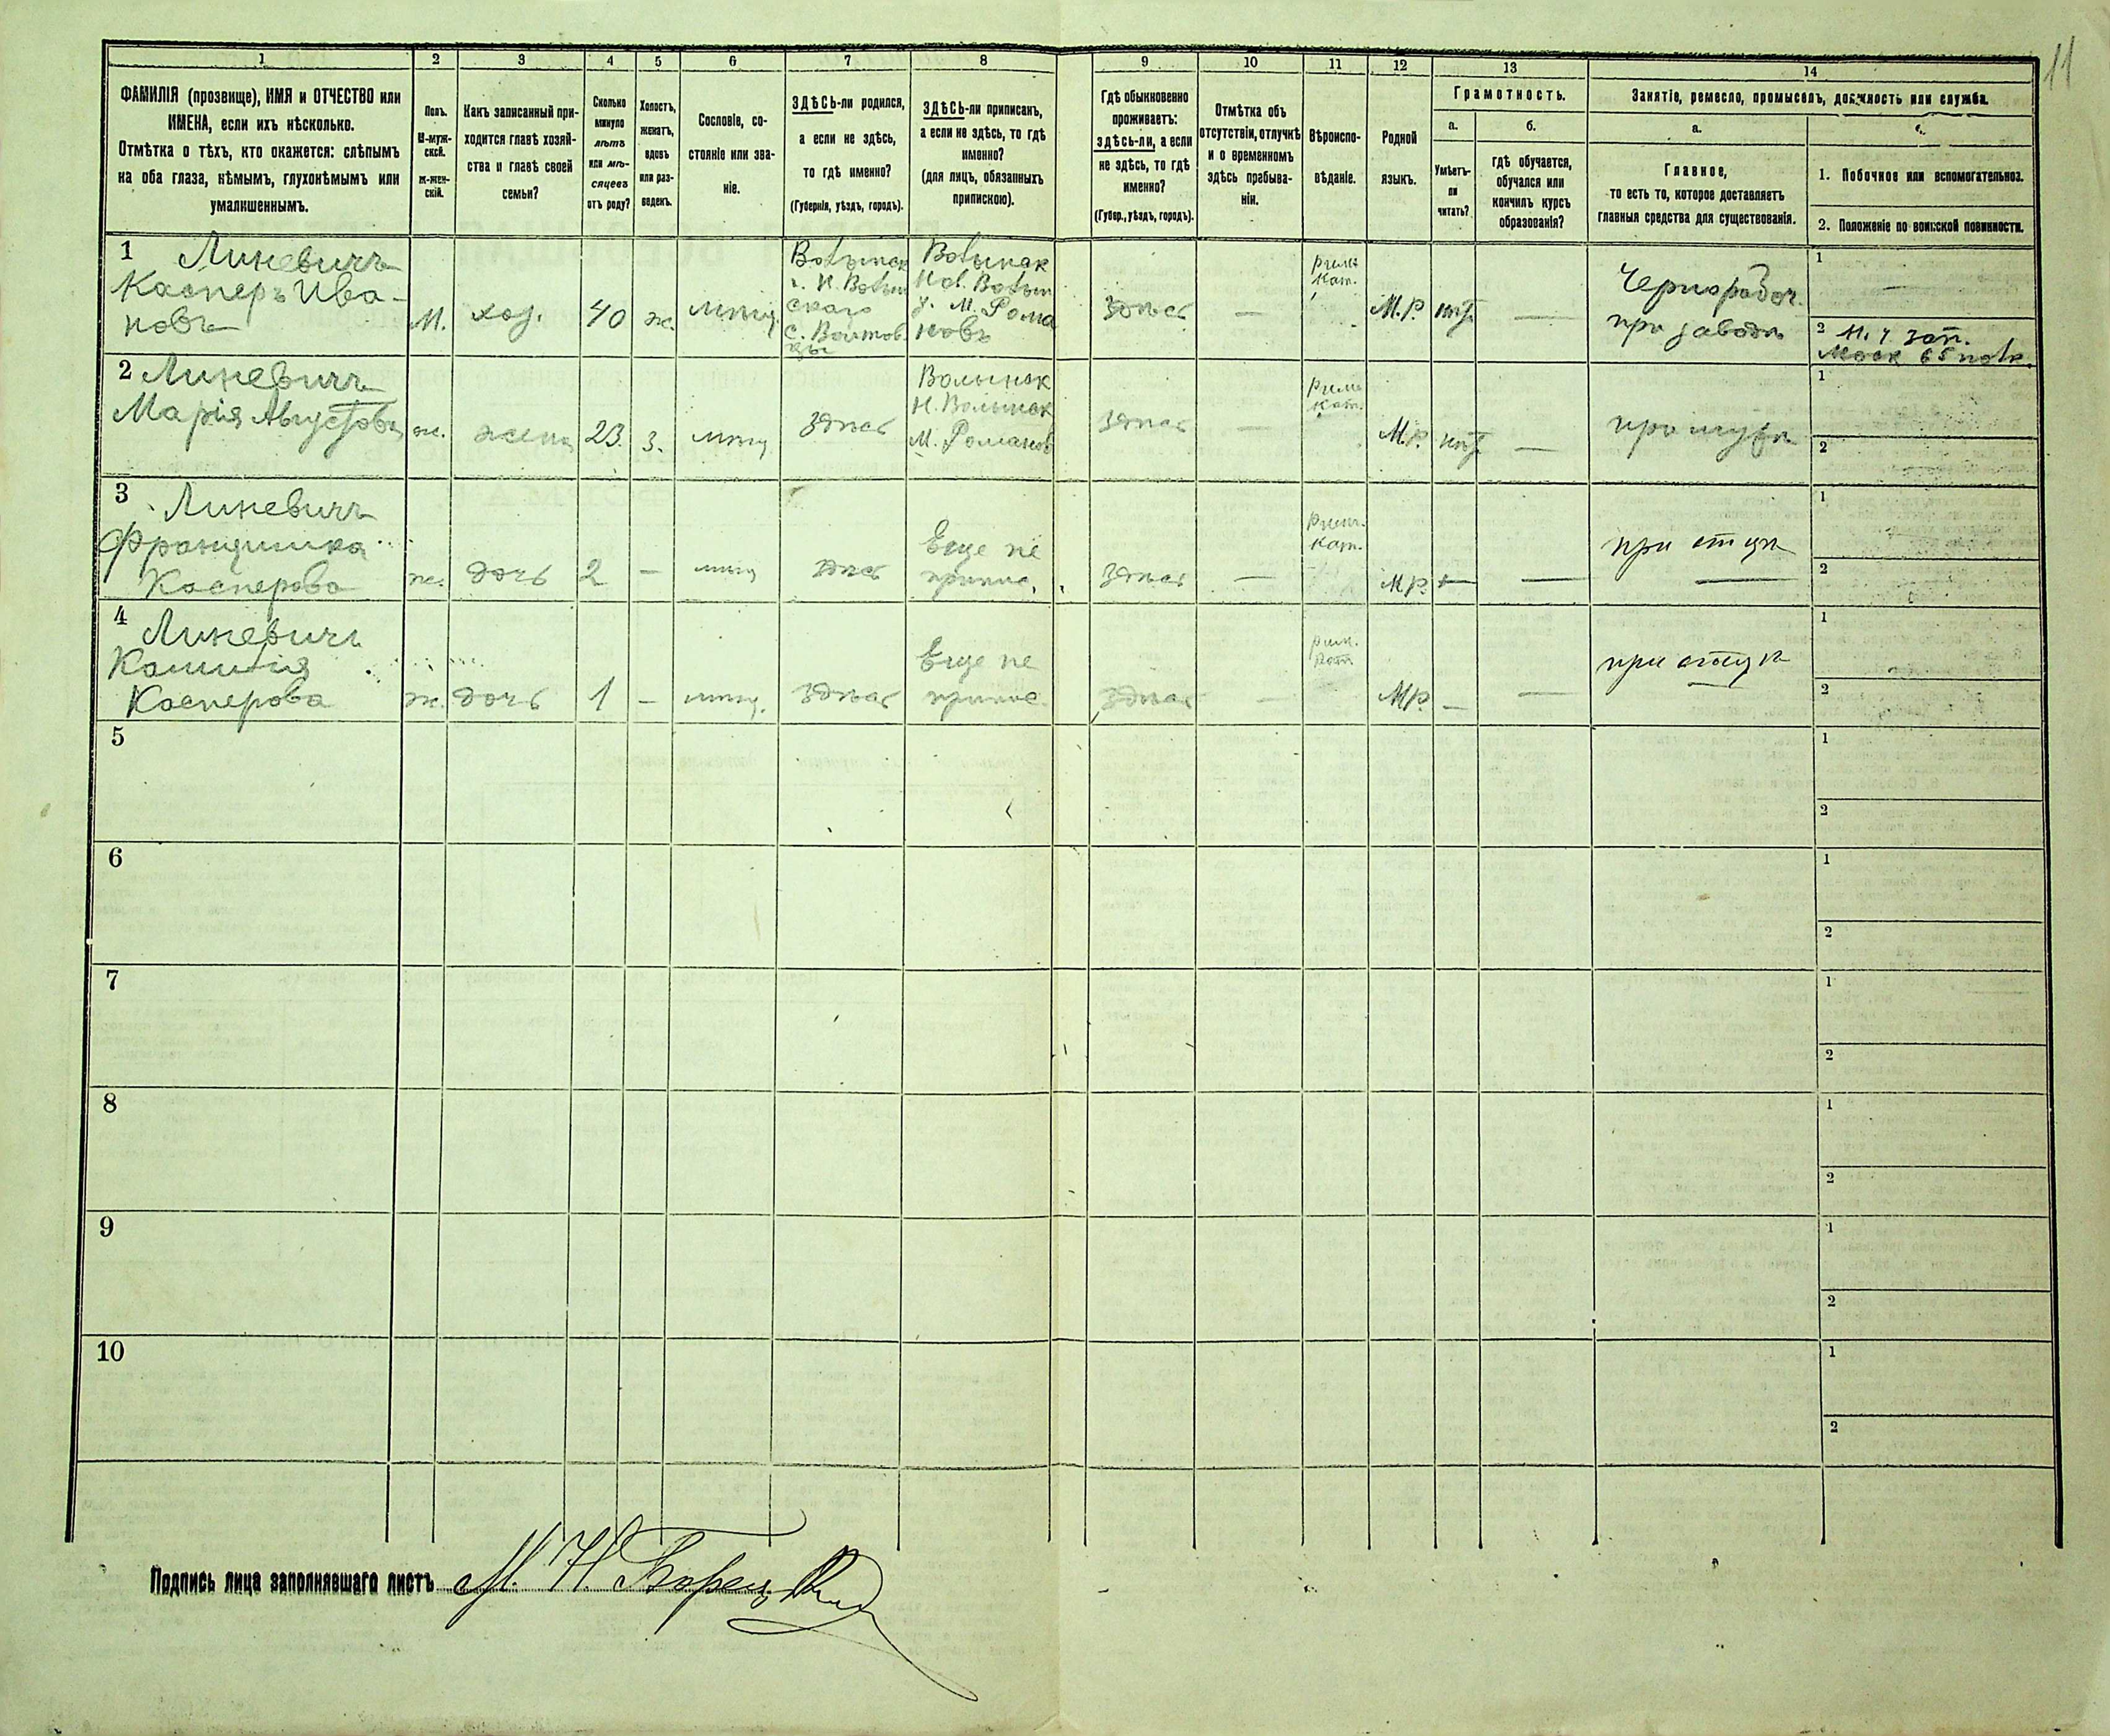 11
1
2
3
4
5
6
7
8
9
10
11
12
13
14
ФАМИЛІЯ (прозвище), ИМЯ и ОТЧЕСТВО или
ИМЕНА, если ихъ нѣсколько.
Отмѣтка о тѣхъ, кто окажется: слѣпымъ
на оба глаза, нѣмымъ, глухонѣмымъ или
умалишеннымъ.
Полъ.
М-муж-
ской.
Ж-жен-
скій.
Какъ записанный при-
ходится главѣ хозяй-
ства и главѣ своей
семьи?
Сколько
минуло
лѣтъ
или мѣ-
сяцевъ
отъ роду?
Холостъ,
женатъ,
вдовъ
или раз-
веденъ.
Сословіе, со-
стояніе или зва-
ніе.
ЗДѢСЬ-ли родился,
а если не здѣсь,
то гдѣ именно?
(Губернія, уѣздъ, городъ).
ЗДѢСЬ-ли приписан,
а если не здѣсь, то гдѣ
именно?
(для лицъ, обязанныхъ
припискою).
Гдѣ обыкновенно
проживаетъ:
здѣсь-ли, а если
не здѣсь, то гдѣ
именно?
(Губер., уѣздъ, городъ).
Отмѣтка объ
отсутствіи, отлучкѣ
и о временномъ
здѣсь пребыва-
ніи.
Вѣроиспо-
вѣданіе.
Родной
языкъ.
Грамотность.
а.
Умѣетъ-
ли
читать?
б.
гдѣ обучается,
обучался или
кончилъ курсъ
образованія?
Занятіе, ремесло, промыселъ, должность или служба.
а.
Главное,
то есть то, которое доставляетъ
главныя средства для существованія.
1. Побочное или вспомогательное.
2. Положеніе по воинской повинности.
1
Линевичъ
Касперъ Ива-
новъ
М.
хоз.
40
ж.
мѣщ.
Волынск
г. Н. Волын
скаго
Волынск
Нов. Волын
у. М. Рома
новъ
здѣсь
—
Римк
Кат.
М.Р.
нѣт
—
Чернорабоч.
при заводѣ
1
—
2
зап.
2
Линевичъ
Марія Августова
ж.
жена
23.
з.
мѣщ
здѣсь
Волынск
Н. Волынск
М. Романов
здѣсь
—
Римк
Кат.
М.Р.
нѣт
—
при мужѣ
1
2
3
Линевичъ
Францишка
Касперова
ж.
дочь
2
—
мѣщ
здѣсь
Еще не
припис.
здѣсь
—
Римк.
Кат.
М.Р.
—
—
при отцѣ
1
2
4
Линевичъ
Касперова
ж.
дочь
1
—
мѣщ.
здѣсь
Еще не
припис.
здѣсь
—
Римк.
Кат.
М.Р.
—
—
при отцѣ
1
2
5
1
2
6
1
2
7
1
2
8
1
2
9
1
2
10
1
2
Подпись лица заполнявшаго листъ М. Н.